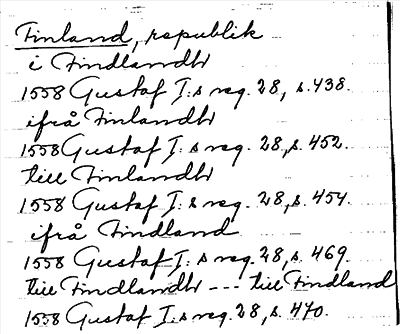 Finland, republik
i Findlandh
1558 Gustaf I:s reg. 28, s. 438.
ifrå Finlandh
1558 Gustaf I:s reg. 28, s. 452.
till Finlandh
1558 Gustaf I:s reg. 28, s. 454.
ifrå Findland
1558 Gustaf I:s reg. 28, s. 469.
till Findlandh --- till Findland
1558 Gustaf I:s reg. 28, s. 470.